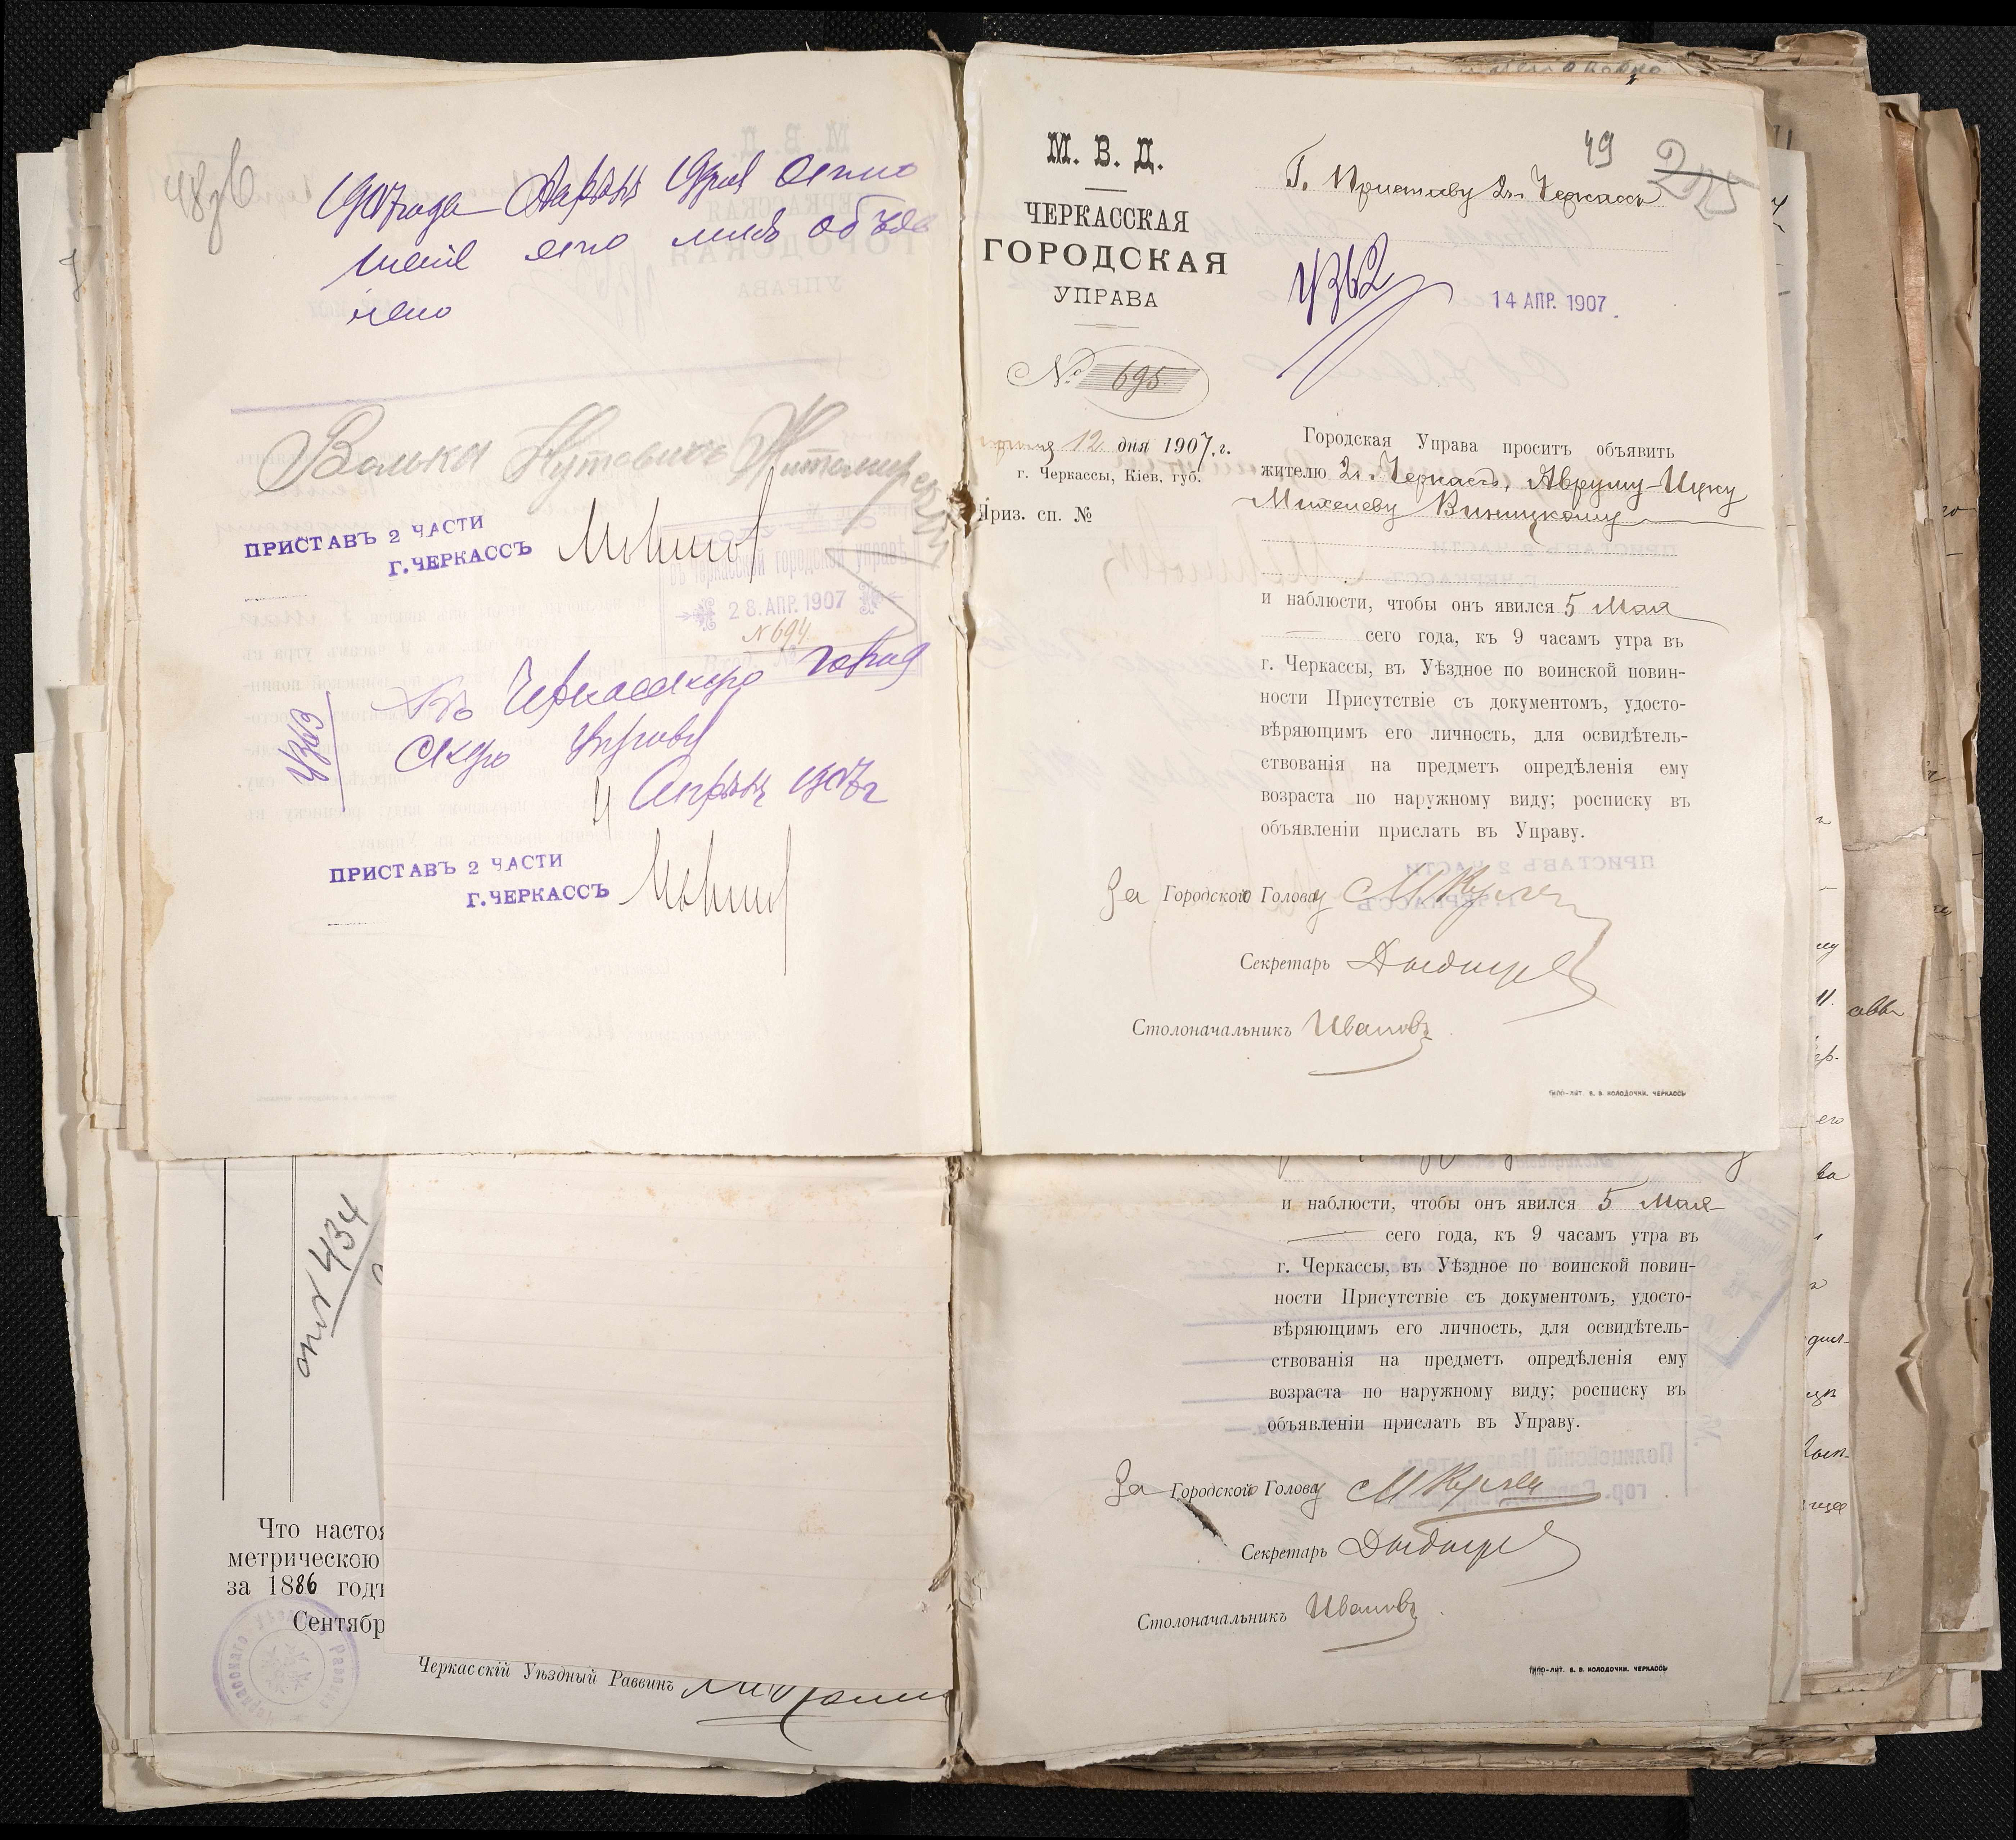 48 об
1907 года Апреля дня сего
мне объяв
лено
Волька Нутовичъ Житомирскій
ПРИСТАВЪ 2 ЧАСТИ
Г. ЧЕРКАССЪ
въ Черкасской городской управѣ
28. АПР. 1907
№ 694
Въ Черкасскую город
скую Управу
4363
Апрѣля 1907 г
ПРИСТАВЪ 2 ЧАСТИ
Г. ЧЕРКАССЪ
М. В. Д.
ЧЕРКАССКАЯ
ГОРОДСКАЯ
УПРАВА
№ 695
12 дня 1907 г.
г. Черкассы, Кіев. губ.
Приз. сп. №
49
225
Г. Приставу 2 ч. Черкассъ
4362
14 АПР. 1907
Городская Управа проситъ объявить
жителю г. Черкассъ, Авруму-Ицку
Михелеву Винницкому
и наблюсти, чтобы онъ явился 5 Мая
сего года, къ 9 часамъ утра въ
г. Черкассы, въ Уѣздное по воинской повин-
ности Присутствіе съ документомъ, удосто-
вѣряющимъ его личность, для освидѣтель-
ствованія на предметъ опредѣленія ему
возраста по наружному виду; росписку въ
объявленіи прислать въ Управу.
За Городского Голову
Секретарь
Столоначальникъ Ивановъ
ТИПО-ЛИТ. В. В. КОЛОДОЧКИ. ЧЕРКАССЫ
434
Что настоя
метрическою
за 1886 годъ
Сентябр
Черкасскій Уѣздный Раввинъ
и наблюсти, чтобы онъ явился 5 Мая
сего года, къ 9 часамъ утра въ
г. Черкассы, въ Уѣздное по воинской повин-
ности Присутствіе съ документомъ, удосто-
вѣряющимъ его личность, для освидѣтель-
ствованія на предметъ опредѣленія ему
возраста по наружному виду; росписку въ
объявленіи прислать въ Управу.
За Городского Голову
Секретарь
Столоначальникъ Ивановъ
ТИПО-ЛИТ. В. В. КОЛОДОЧКИ. ЧЕРКАССЫ